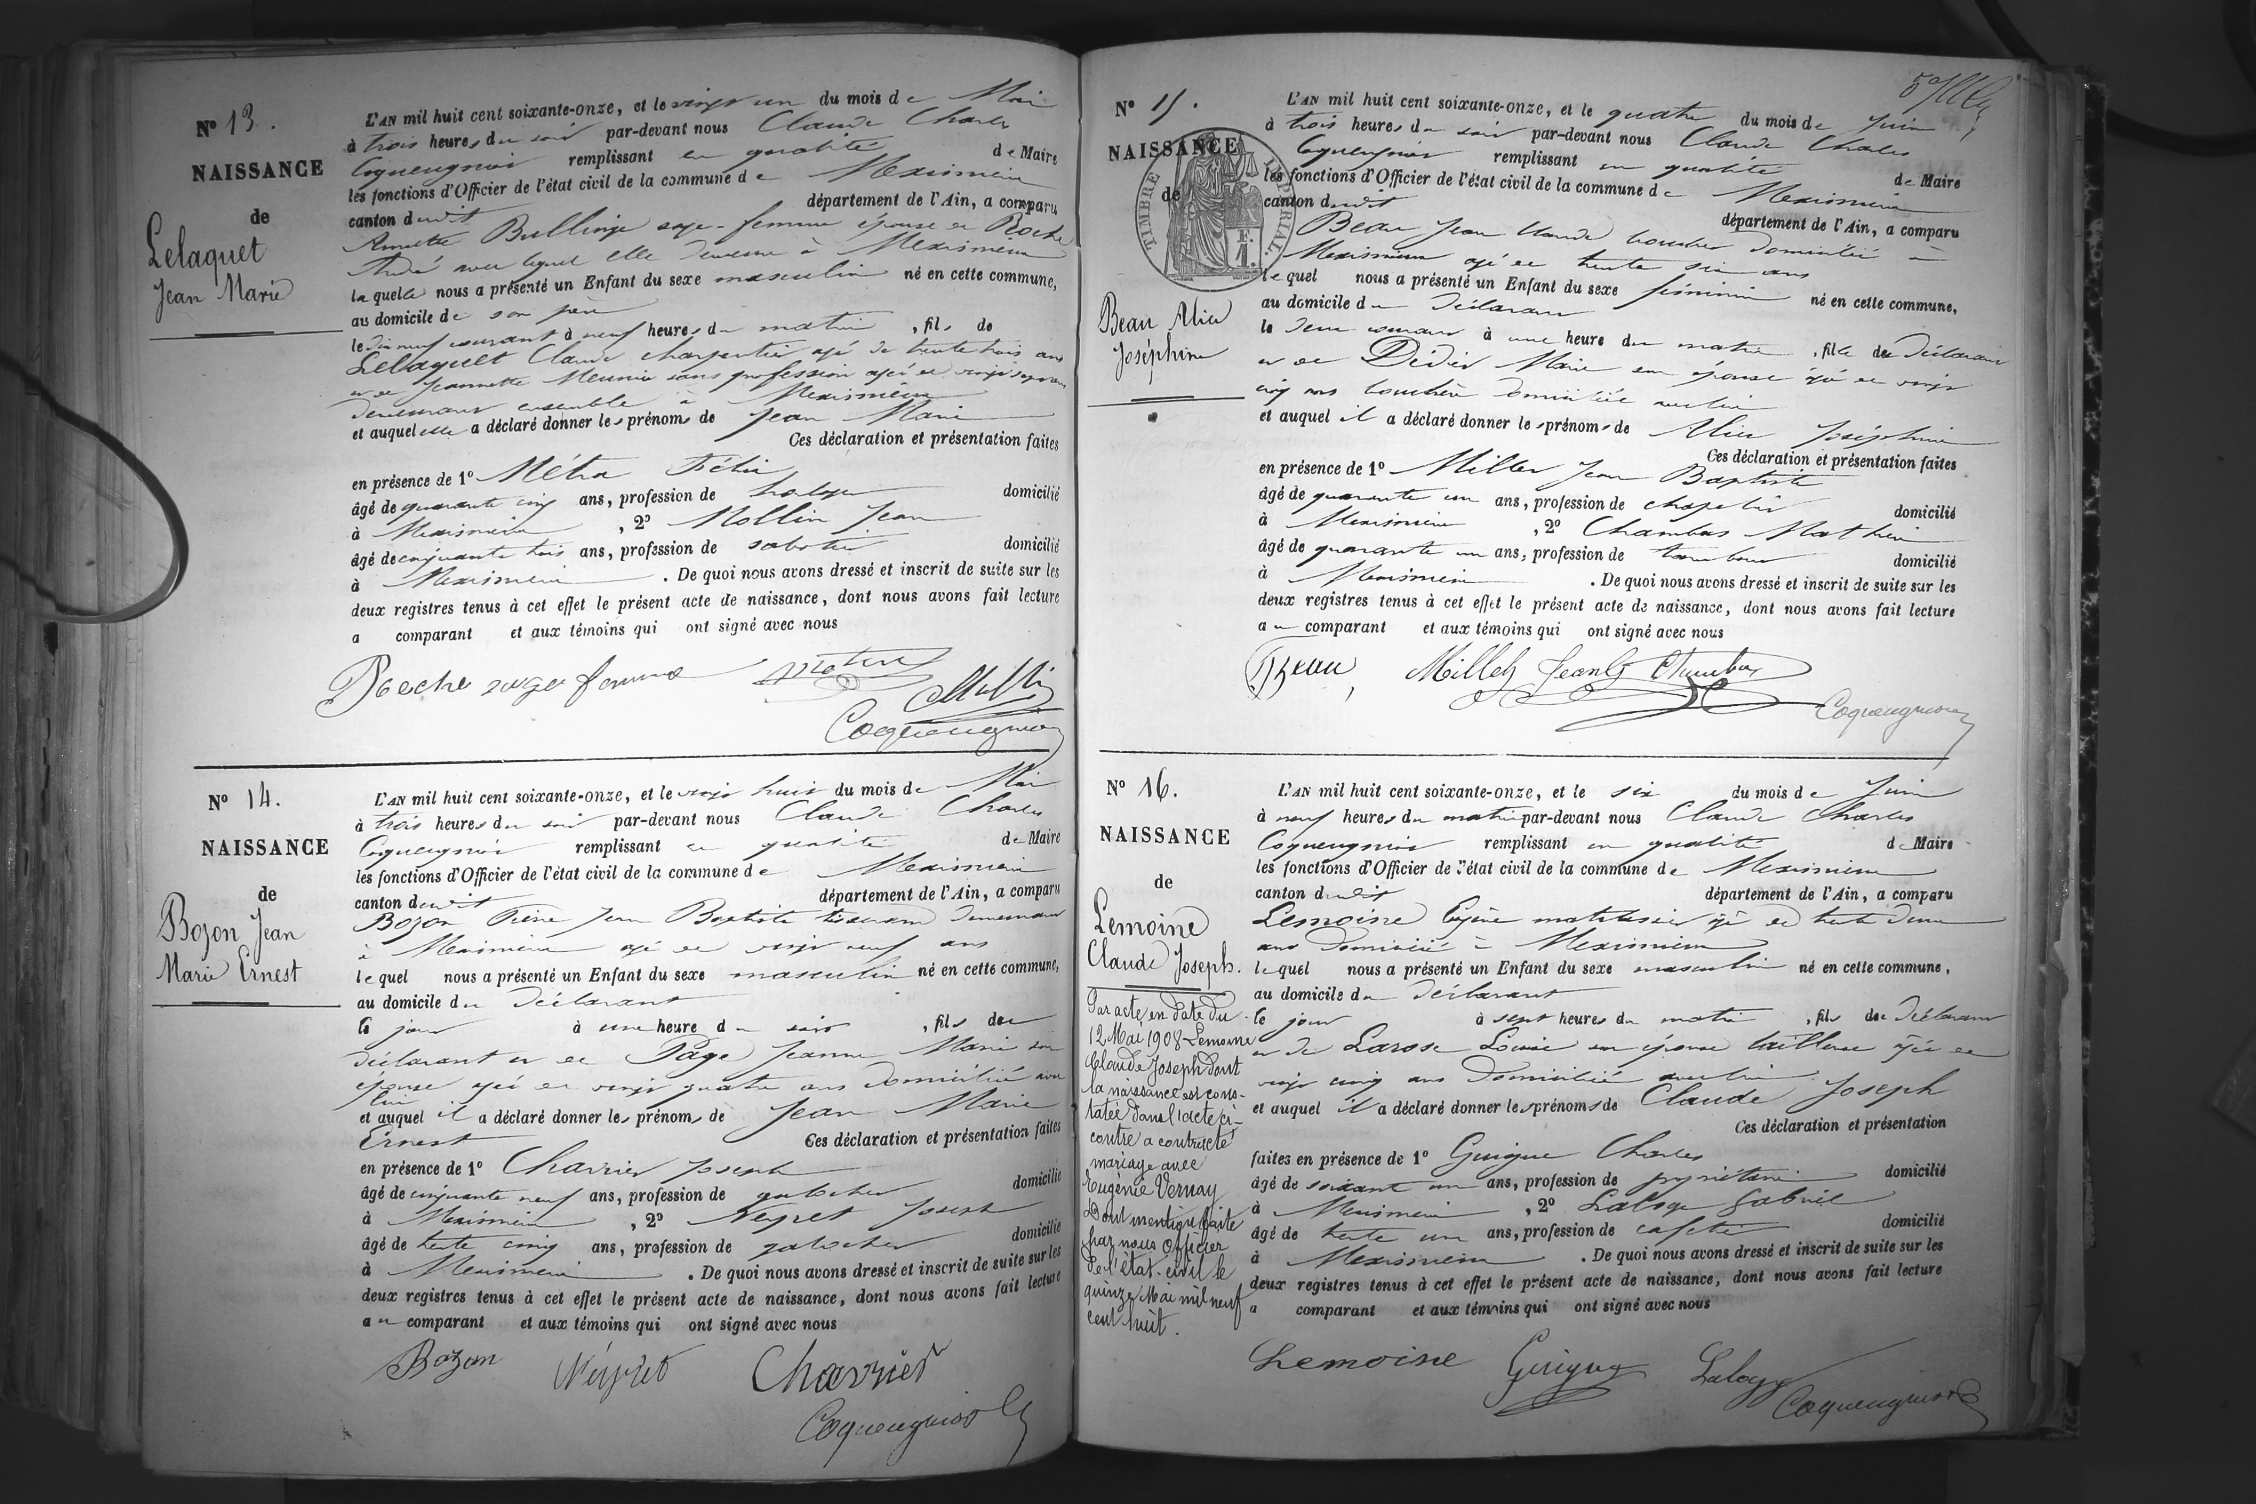 N° 13.
NAISSANCE
de
Lelaquet
Jean Marie
L'AN mil huit cent soixante-onze, et le vingt un du mois de Mai
à trois heures du soir par-devant nous Claude Charles
Coqueugniot remplissant en qualité de Maire
les fonctions d'Officier de l'état civil de la commune de Meximieux
canton dudit département de l'Ain, a comparu
Annette Bullinge sage-femme épouse de Roche
André avec lequel elle demeure à Meximieux
laquelle nous a présenté un Enfant du sexe masculin né en cette commune,
au domicile de son père
le dix neuf courant à neuf heures du matin, fils de
Lellaquet Claude charpentier agé de trente trois ans
et de Jeannette Meunier sans profession agée de vingt sept ans
demeurant ensemble à Meximieux
et auquel elle a déclaré donner les prénoms de Jean Marie
Ces déclaration et présentation faites
en présence de 1° Métra Félix
âgé de quarante cinq ans, profession de domicilié
à Meximieux, 2° Mollin Jean
âgé de cinquante trois ans, profession de sabotier domicilié
à Meximieux. De quoi nous avons dressé et inscrit de suite sur les
deux registres tenus à cet effet le présent acte de naissance, dont nous avons fait lecture
a comparant et aux témoins qui ont signé avec nous
Roche sage femme
Coqueugniot
N° 14.
NAISSANCE
de
Bozon Jean
Marie Ernest
L'AN mil huit cent soixante-onze, et le vingt huit du mois de Mai
à trois heures du soir par-devant nous Claude Charles
Coqueugniot remplissant en qualité de Maire
les fonctions d'Officier de l'état civil de la commune de Meximieux
canton dudit département de l'Ain, a comparu
Bozon Jean Baptiste tisserand demeurant
à Meximieux agé de vingt neuf ans
lequel nous a présenté un Enfant du sexe masculin né en cette commune,
au domicile du déclarant
le jour à une heure du soir, fils du
déclarant et de Page Jeanne Marie son
épouse agée de vingt quatre ans domiciliée avec
lui
et auquel il a déclaré donner les prénoms de Jean Marie
Ernest Ces déclaration et présentation faites
en présence de 1° Charvier Joseph
âgé de cinquante neuf ans, profession de galocher domicilié
à Meximieux, 2° Neyret Joseph
âgé de trente cinq ans, profession de galocher domicilié
à Meximieux. De quoi nous avons dressé et inscrit de suite sur les
deux registres tenus à cet effet le présent acte de naissance, dont nous avons fait lecture
au comparant et aux témoins qui ont signé avec nous
Bozon Neyret Charvier
Coqueugniot
N° 15.
NAISSANCE
de
TIMBRE IMPÉRIAL.
Beau Alice
Joséphine
L'AN mil huit cent soixante-onze, et le quatre du mois de Juin
à trois heures du soir par-devant nous Claude Charles
Coqueugniot remplissant en qualité de Maire
les fonctions d'Officier de l'état civil de la commune de Meximieux
canton dudit département de l'Ain, a comparu
Beau Jean Claude boucher domicilié à
Meximieux agé de trente six ans
lequel nous a présenté un Enfant du sexe féminin né en cette commune,
au domicile du déclarant
le deux courant à une heure du matin, fille du déclarant
et de Didier Marie son épouse agé de vingt
cinq ans bouchère domiciliée avec lui
et auquel il a déclaré donner les prénoms de Alice Joséphine
Ces déclaration et présentation faites
en présence de 1° Millet Jean Baptiste
âgé de quarante un ans, profession de chapelier domicilié
à Meximieux, 2° Chambas Mathieu
âgé de quarante un ans, profession de tambour domicilié
à Meximieux. De quoi nous avons dressé et inscrit de suite sur les
deux registres tenus à cet effet le présent acte de naissance, dont nous avons fait lecture
au comparant et aux témoins qui ont signé avec nous
Beau Millet Jean B Chambas
Coqueugniot
N° 16.
NAISSANCE
de
Lemoine
Claude Joseph.
Par acte en date du
12 Mai 1908 Lemoine
Claude Joseph dont
la naissance est cons-
tatée dans l'acte ci-
contre a contracté
mariage avec
Eugénie Vernay
Dont mention faite
par nous Officier
de l'état-civil le
quinze Mai mil neuf
cent huit.
L'AN mil huit cent soixante-onze, et le six du mois de Juin
à neuf heures du matin par-devant nous Claude Charles
Coqueugniot remplissant en qualité de Maire
les fonctions d'Officier de l'état civil de la commune de Meximieux
canton dudit département de l'Ain, a comparu
Lemoine Eugène agé de trente deux
ans domicilié à Meximieux
lequel nous a présenté un Enfant du sexe masculin né en cette commune,
au domicile du déclarant
le jour à sept heures du matin, fils du déclarant
et de Larose Louise son épouse tailleuse agée de
vingt cinq ans domiciliée avec lui
et auquel il a déclaré donner les prénoms de Claude Joseph
Ces déclaration et présentation
faites en présence de 1° Guigue Charles
âgé de soixante un ans, profession de propriétaire domicilié
à Meximieux, 2° Laloge Gabriel
âgé de trente un ans, profession de cafetier domicilié
à Meximieux. De quoi nous avons dressé et inscrit de suite sur les
deux registres tenus à cet effet le présent acte de naissance, dont nous avons fait lecture
a comparant et aux témoins qui ont signé avec nous
Lemoine Guigue Laloge
Coqueugniot